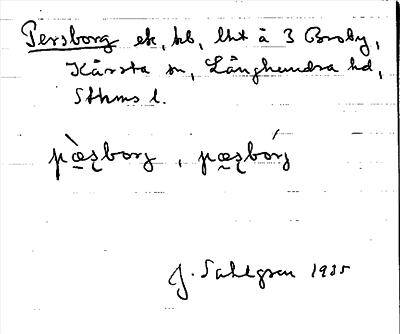 Persborg ek, hb, lht å 3 Broby,
Kårsta sn, Långhundra hd,
Sthms l.
pæ̀ʂborg, pæʂbórg
J. Sahlgren 1935